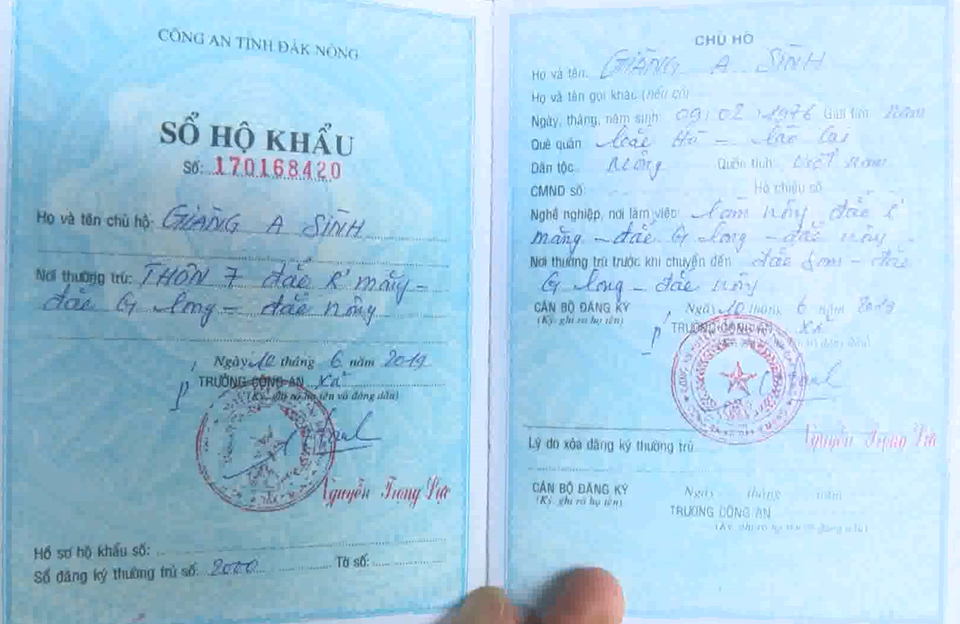 CÔNG AN TỈNH ĐẮK NÔNG
SỔ HỘ KHẨU
Số: 170168420
Họ và tên chủ hộ: GIÀNG A SÌNH
Nơi thường trú: THÔN 7 đắc R' măng -
đắc G long - đắc nông
Ngày 10 tháng 6 năm 2019
TRƯỞNG CÔNG AN Xã
(Ký, ghi rõ họ tên và đóng dấu)
Nguyễn Trọng Lực
Hồ sơ hộ khẩu số:
Sổ đăng ký thường trú số: 2000 Tờ số:
CHỦ HỘ
Họ và tên: GIÀNG A SÌNH
Họ và tên gọi khác (nếu có)
Ngày, tháng, năm sinh: 09/02/1976 Giới tính: nam
Quê quán: Hà - lào cai
Dân tộc: mông Quốc tịch: việt nam
CMND số: Hộ chiếu số:
Nghề nghiệp, nơi làm việc: làm nông đắc R'
măng - đắc G long - đắc nông
Nơi thường trú trước khi chuyển đến: đắc som - đắc
G long - đắc nông
CÁN BỘ ĐĂNG KÝ
(Ký, ghi rõ họ tên)
Ngày 10 tháng 6 năm 2019
TRƯỞNG CÔNG AN Xã
(Ký, ghi rõ họ tên và đóng dấu)
Nguyễn Trọng Lực
Lý do xóa đăng ký thường trú
CÁN BỘ ĐĂNG KÝ
(Ký, ghi rõ họ tên)
Ngày tháng năm
TRƯỞNG CÔNG AN
(Ký, ghi rõ họ tên và đóng dấu)